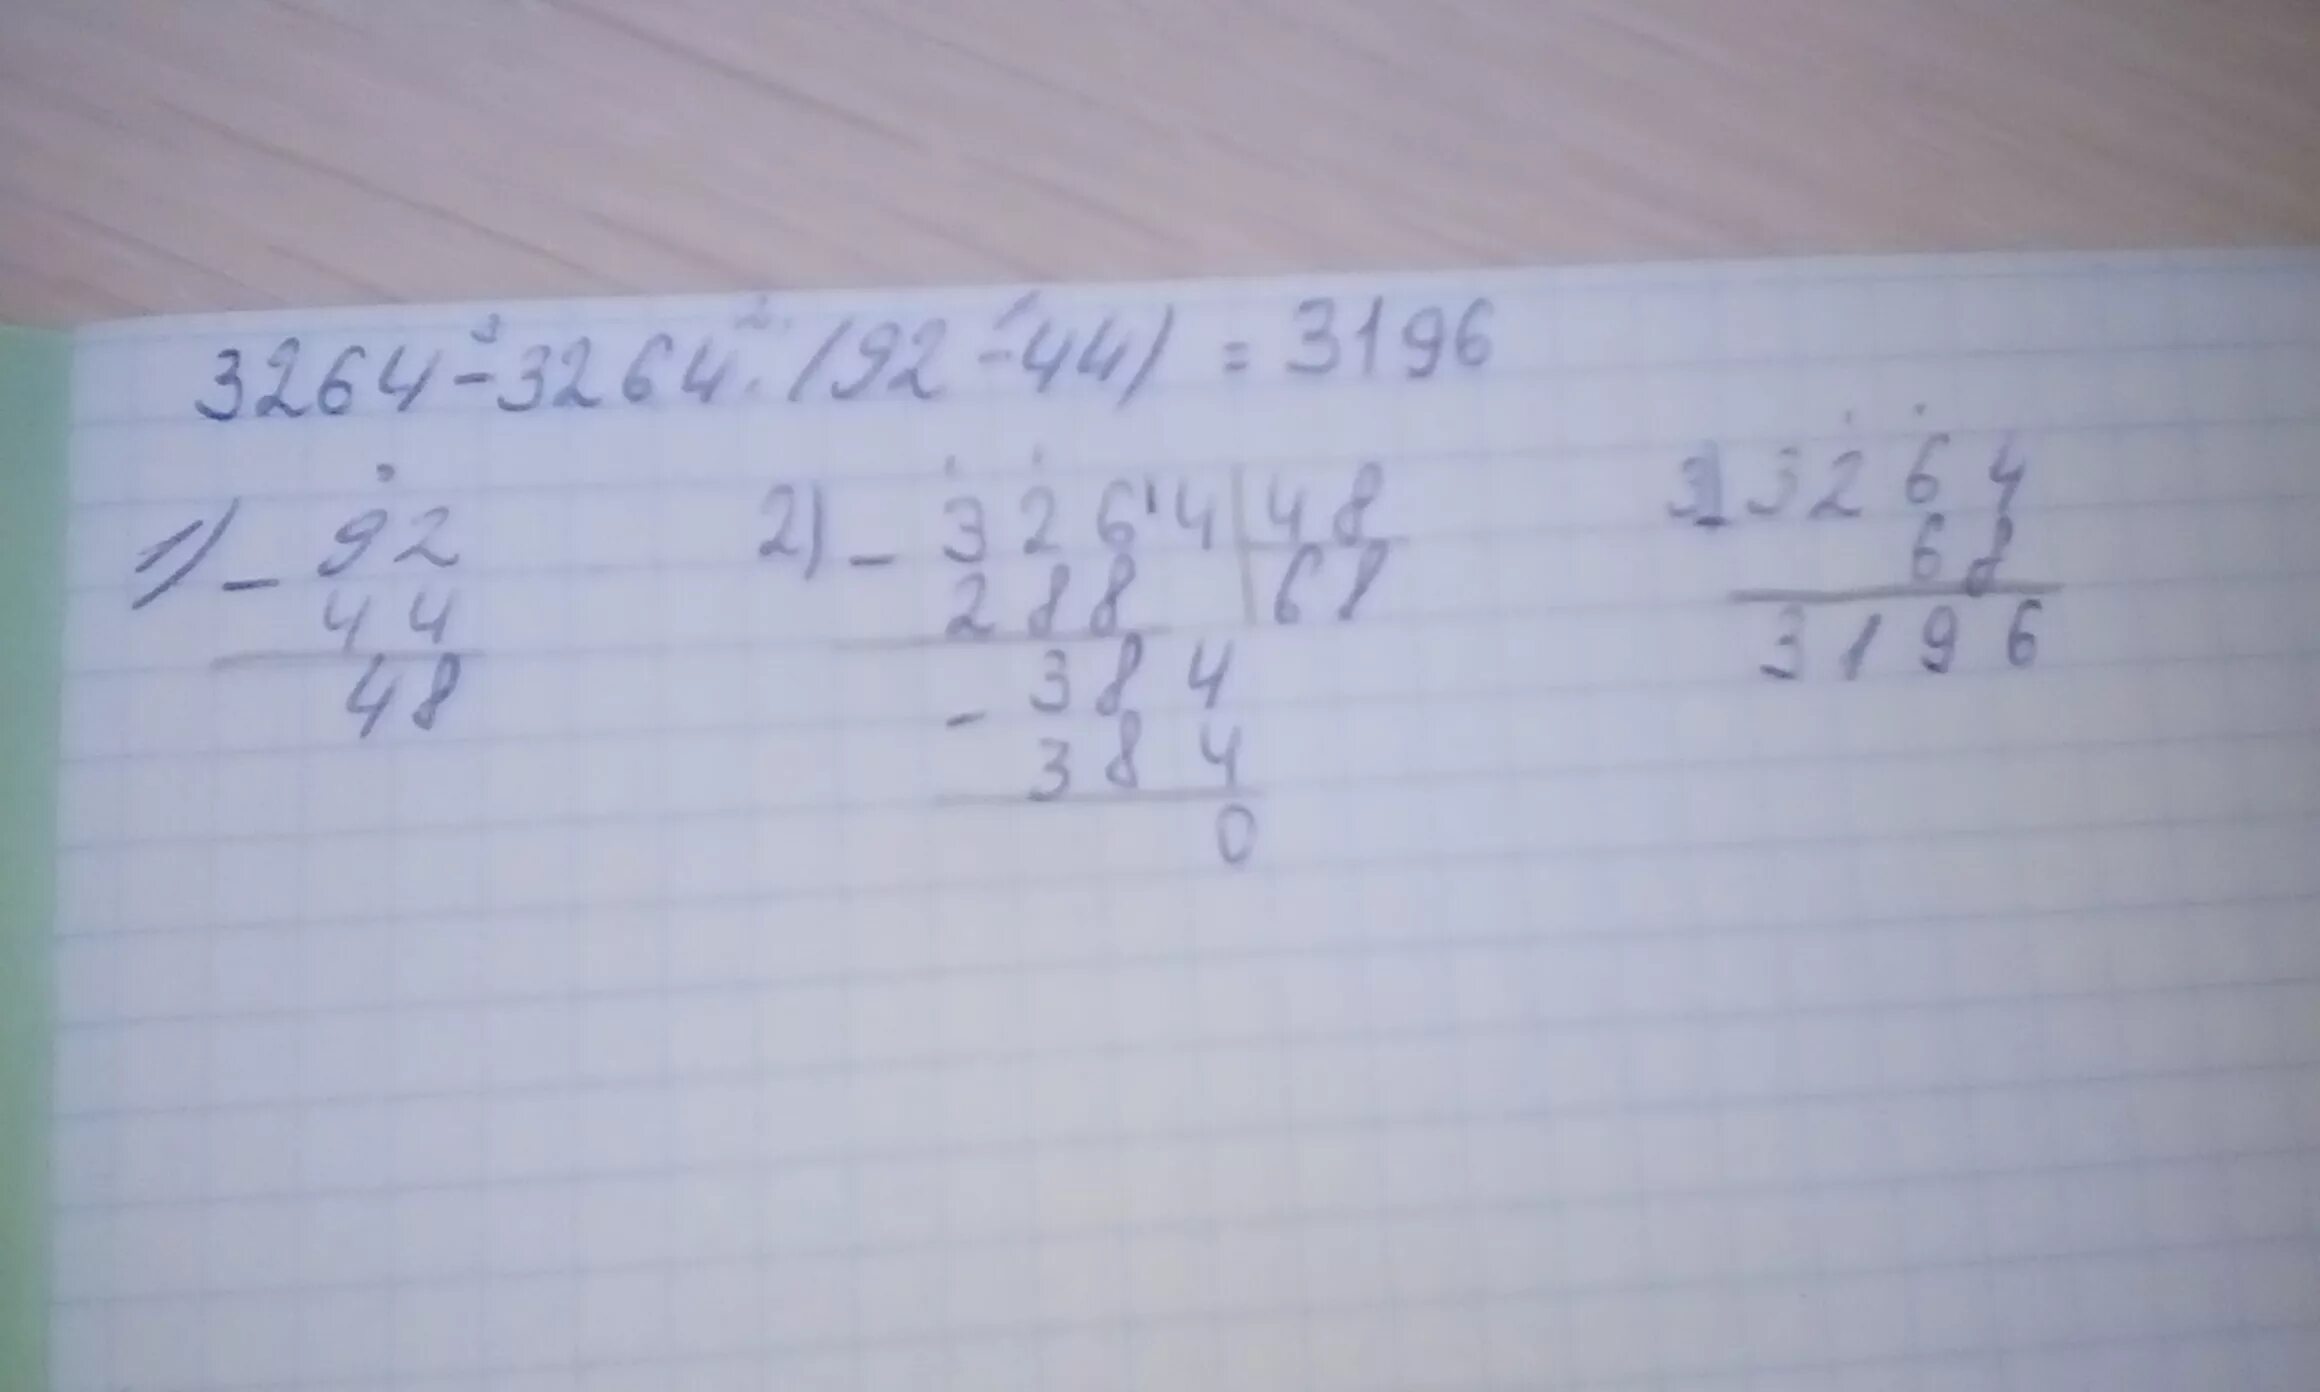 3264 - 3264 : (92 - 44) = 3196
1) - 92
44
48
2) - 3264 | 48
288 | 68
- 384
384
0
3) 3264
68
3196